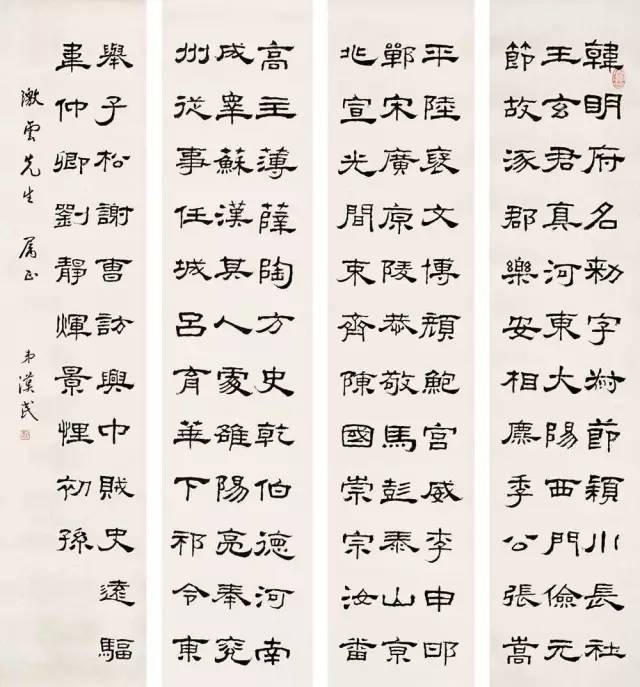 韓明府名勑字叔節穎川長社
王玄君真河東大陽西門儉元
節故涿郡樂安相廉季公張嵩
平陸襃文博顏鮑宮威李申
鄲宋廣原陵恭敬馬彭泰山亰
北宣光間束齊陳國崇宗汝番
高主薄薛陶方史乾伯德河南
成睪蘇漢其人處雒陽亮奉兖
州従事任城呂育華下祁令東
舉子松謝曹訪興中賊史遠驅
韋仲卿劉靜煇景悝初孫
澂雲先生 属正 弟漢民